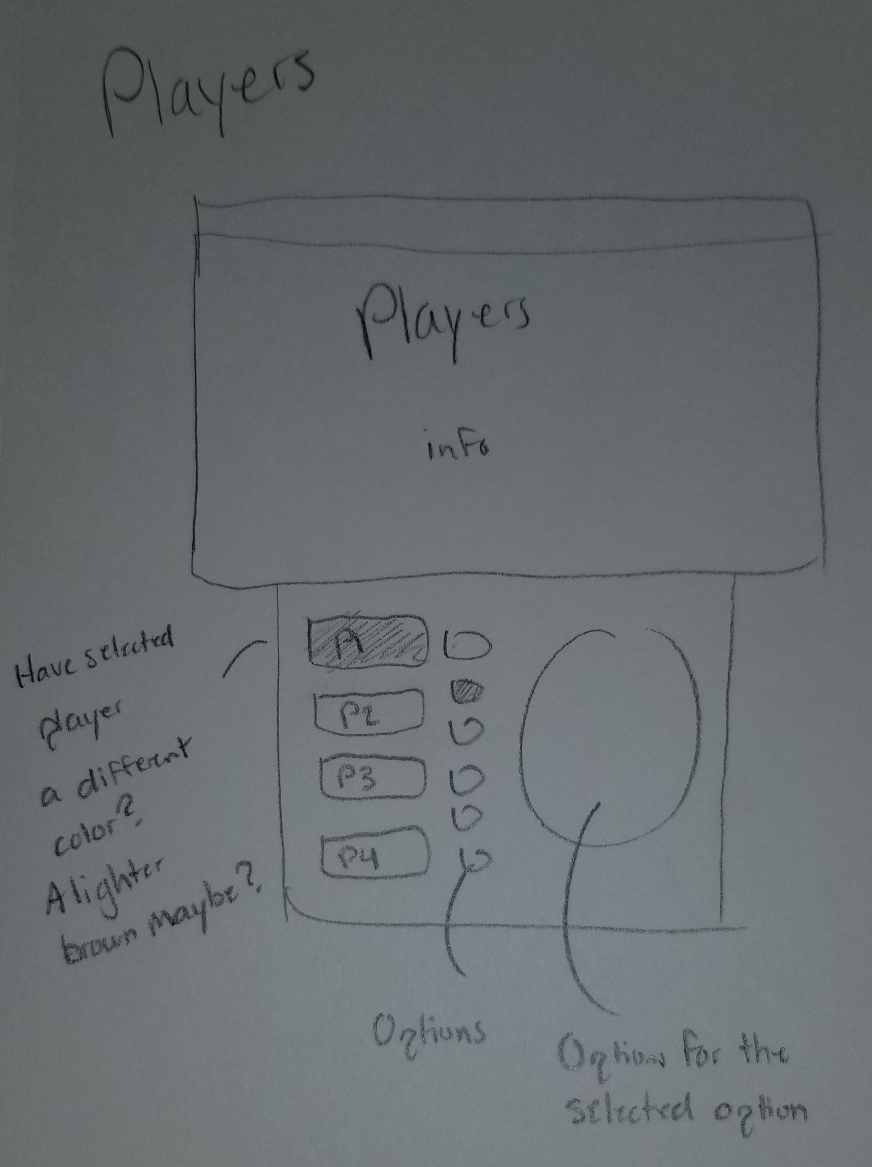 Players
Players
info
P1
P2
P3
P4
Have selected
player
a different
color?
A lighter
brown maybe?
Options
Options for the
selected option